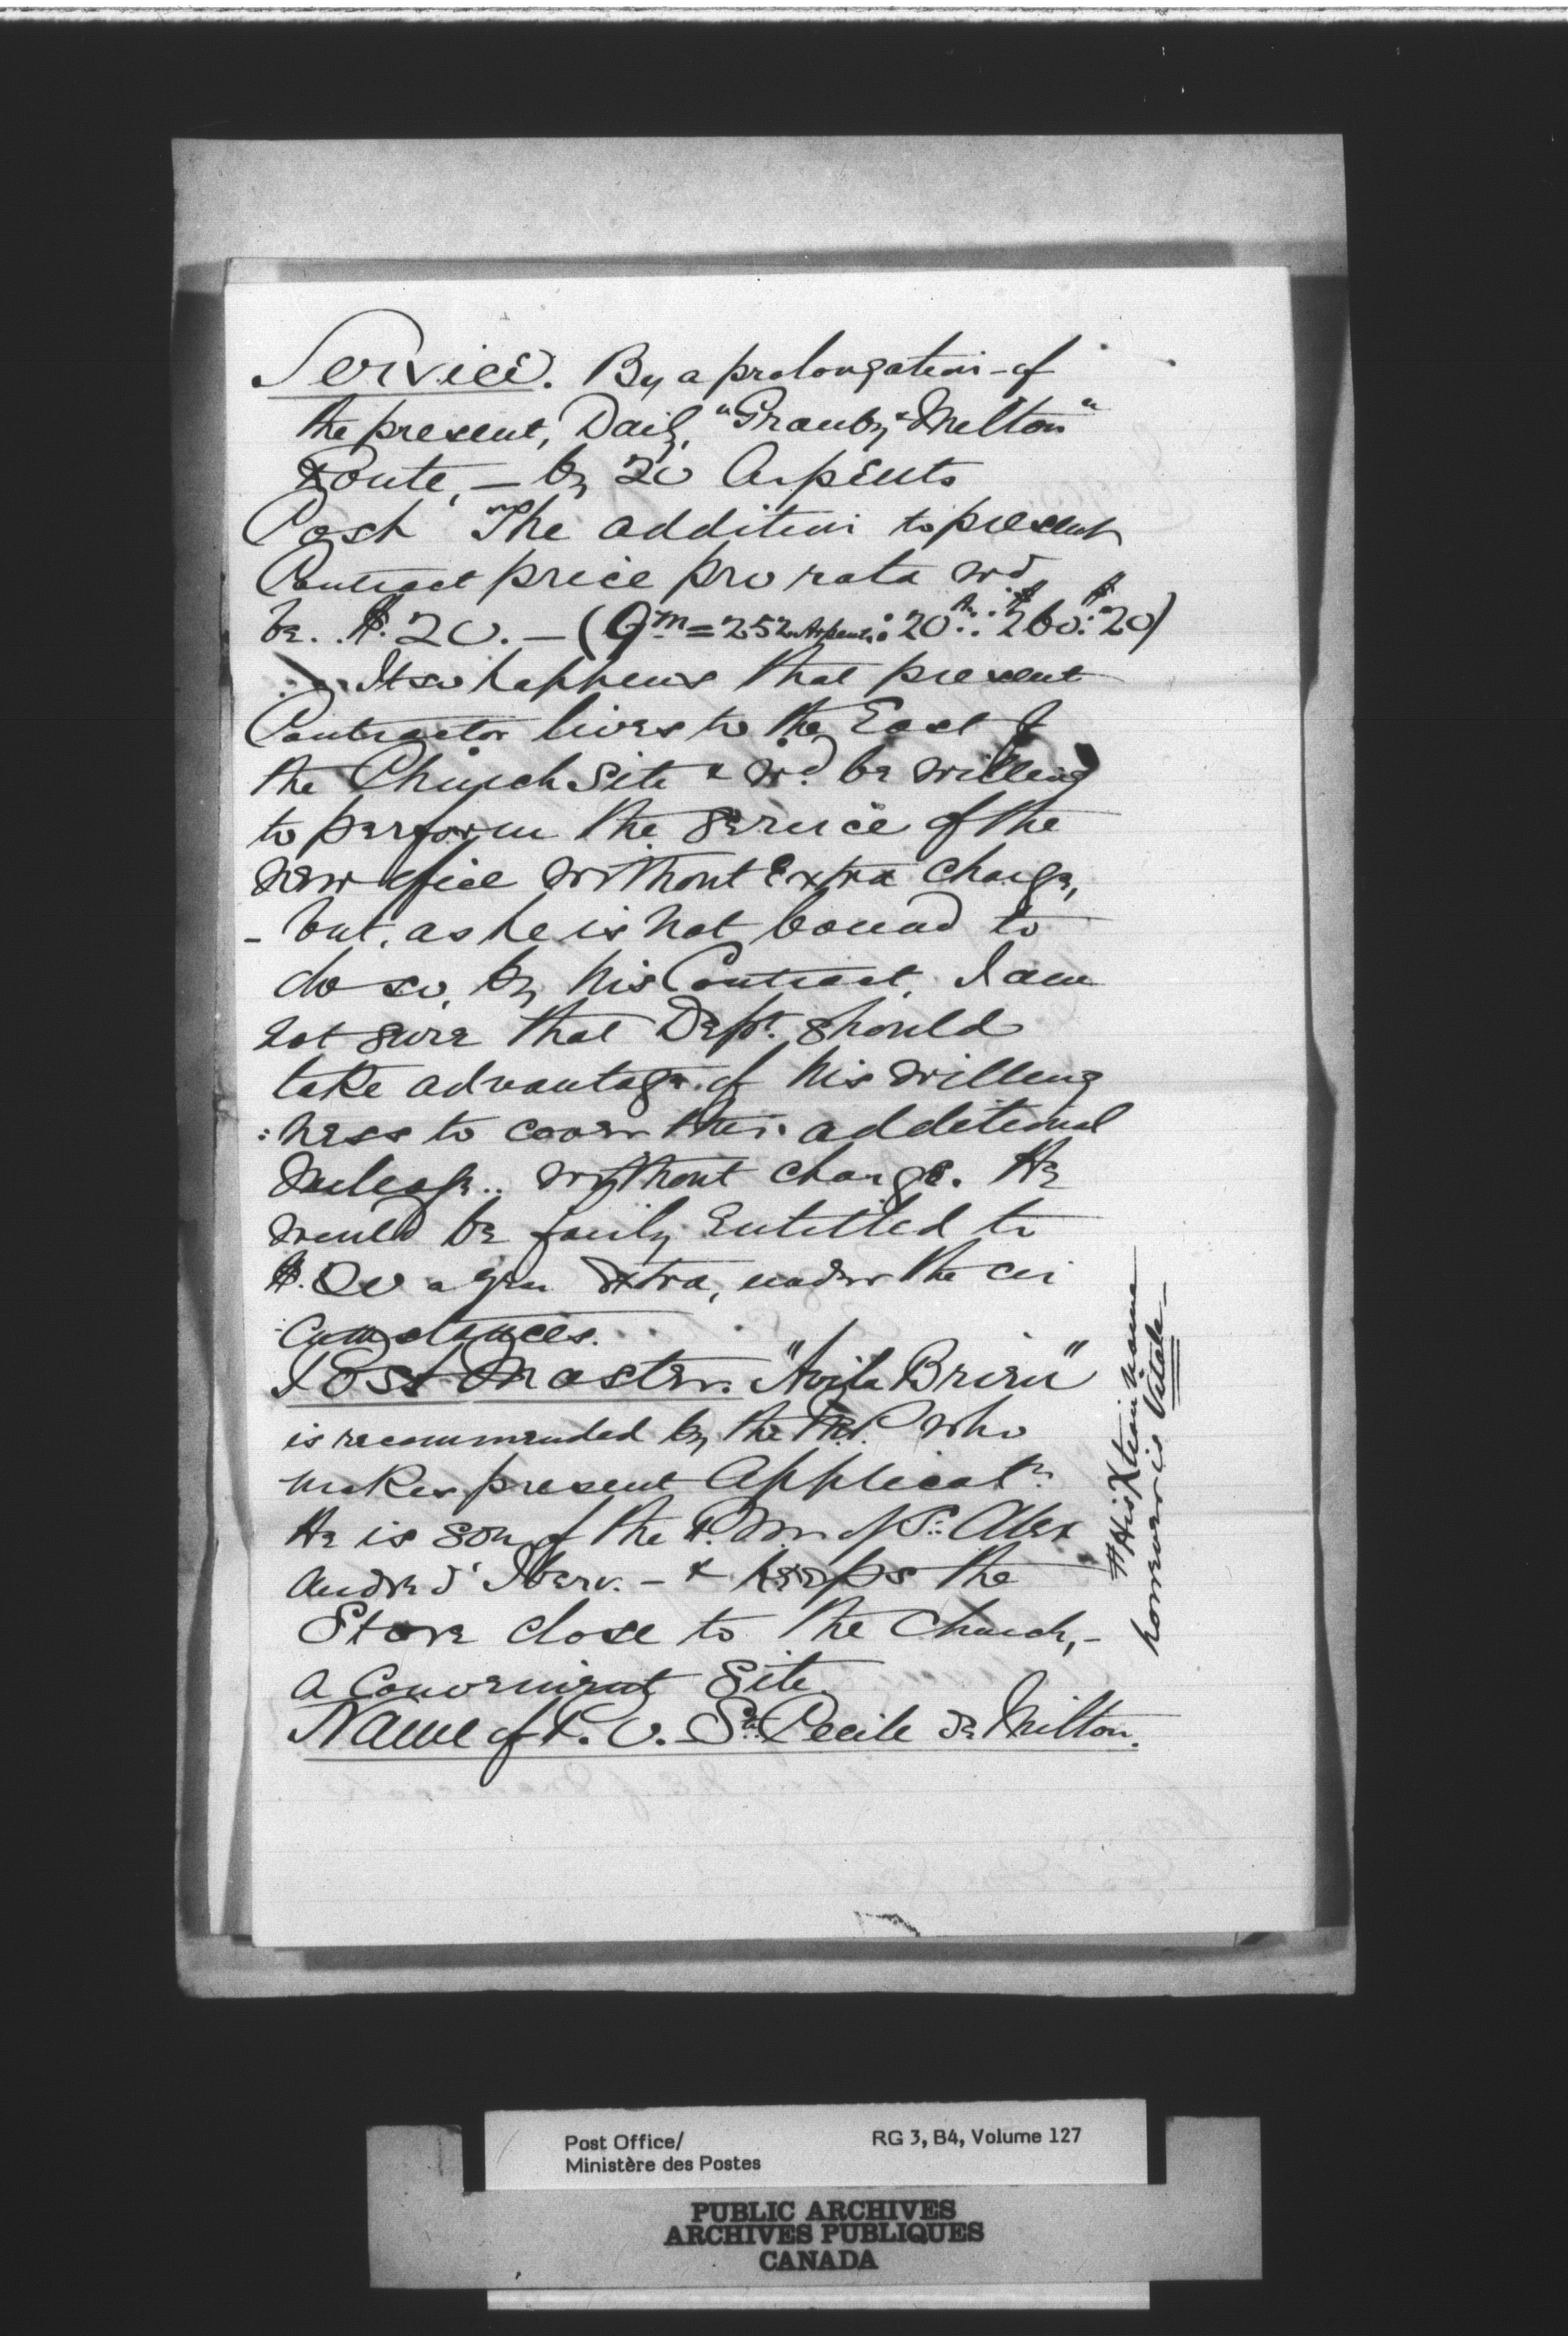 Service. By a prolongation of
the present, Daily, "Granby & Milton"
Route, — by 20 Arpents
Cost The addition to present
Contract price pro rata wd
be. $.20. — (9m = 252 Arpents : 20 Ar. :: $260 : $20)
It so happens that present
Contractor lives to the East of
the Church Site & wd. be willing
to perform the service of the
new office without Extra charge,
- but, as he is not bound to
do so, by his Contract, I am
not sure that Dept. should
take advantage of his willing
: ness to cover this additional
Mileage.. without charge. He
would be fairly Entitled to
$.20 a year Extra, under the cir
cumstances.
Post Master. "Avila Brien"
is recommended by the M.P. who
makes present Applicatn.
He is son of the P.M. of St. Alex
andre d'Iberv. — & keeps the
Store close to the Church, -
a Convenient Site.
Name of P.O. Ste. Cecile de Milton.
# His Xtian name
however is Vitale
Post Office/
Ministère des Postes
RG 3, B4, Volume 127
PUBLIC ARCHIVES
ARCHIVES PUBLIQUES
CANADA